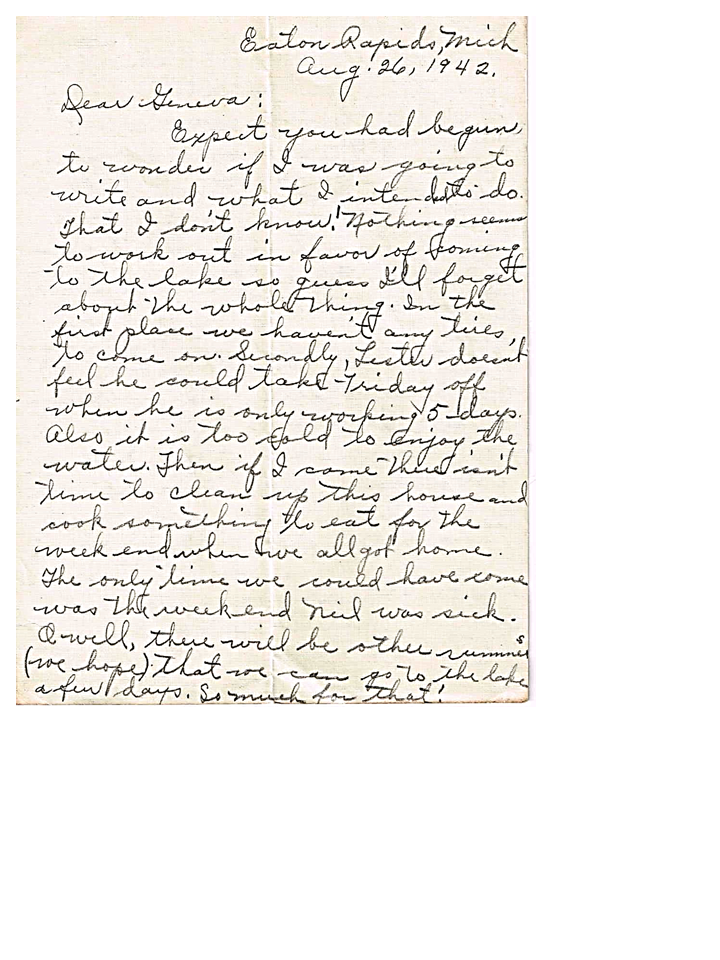 Eaton Rapids, Mich
Aug. 26, 1942.
Dear Geneva:
Expect you had begun
to wonder if I was going to
write and what I intended to do.
That I don't know! Nothing seems
to work out in favor of coming
to the lake so guess I'll forget
about the whole thing. In the
first place we haven't any tires,
to come on. Secondly, Lester doesn't
feel he could take Friday off
when he is only working 5-days.
Also it is too cold to enjoy the
water. Then if I come there isn't
time to clean up this house and
cook something to eat for the
week end when we all got home.
The only time we could have come
was the week end Neil was sick.
O well, there will be other summers
(we hope) that we can go to the lake
a few days. So much for that!